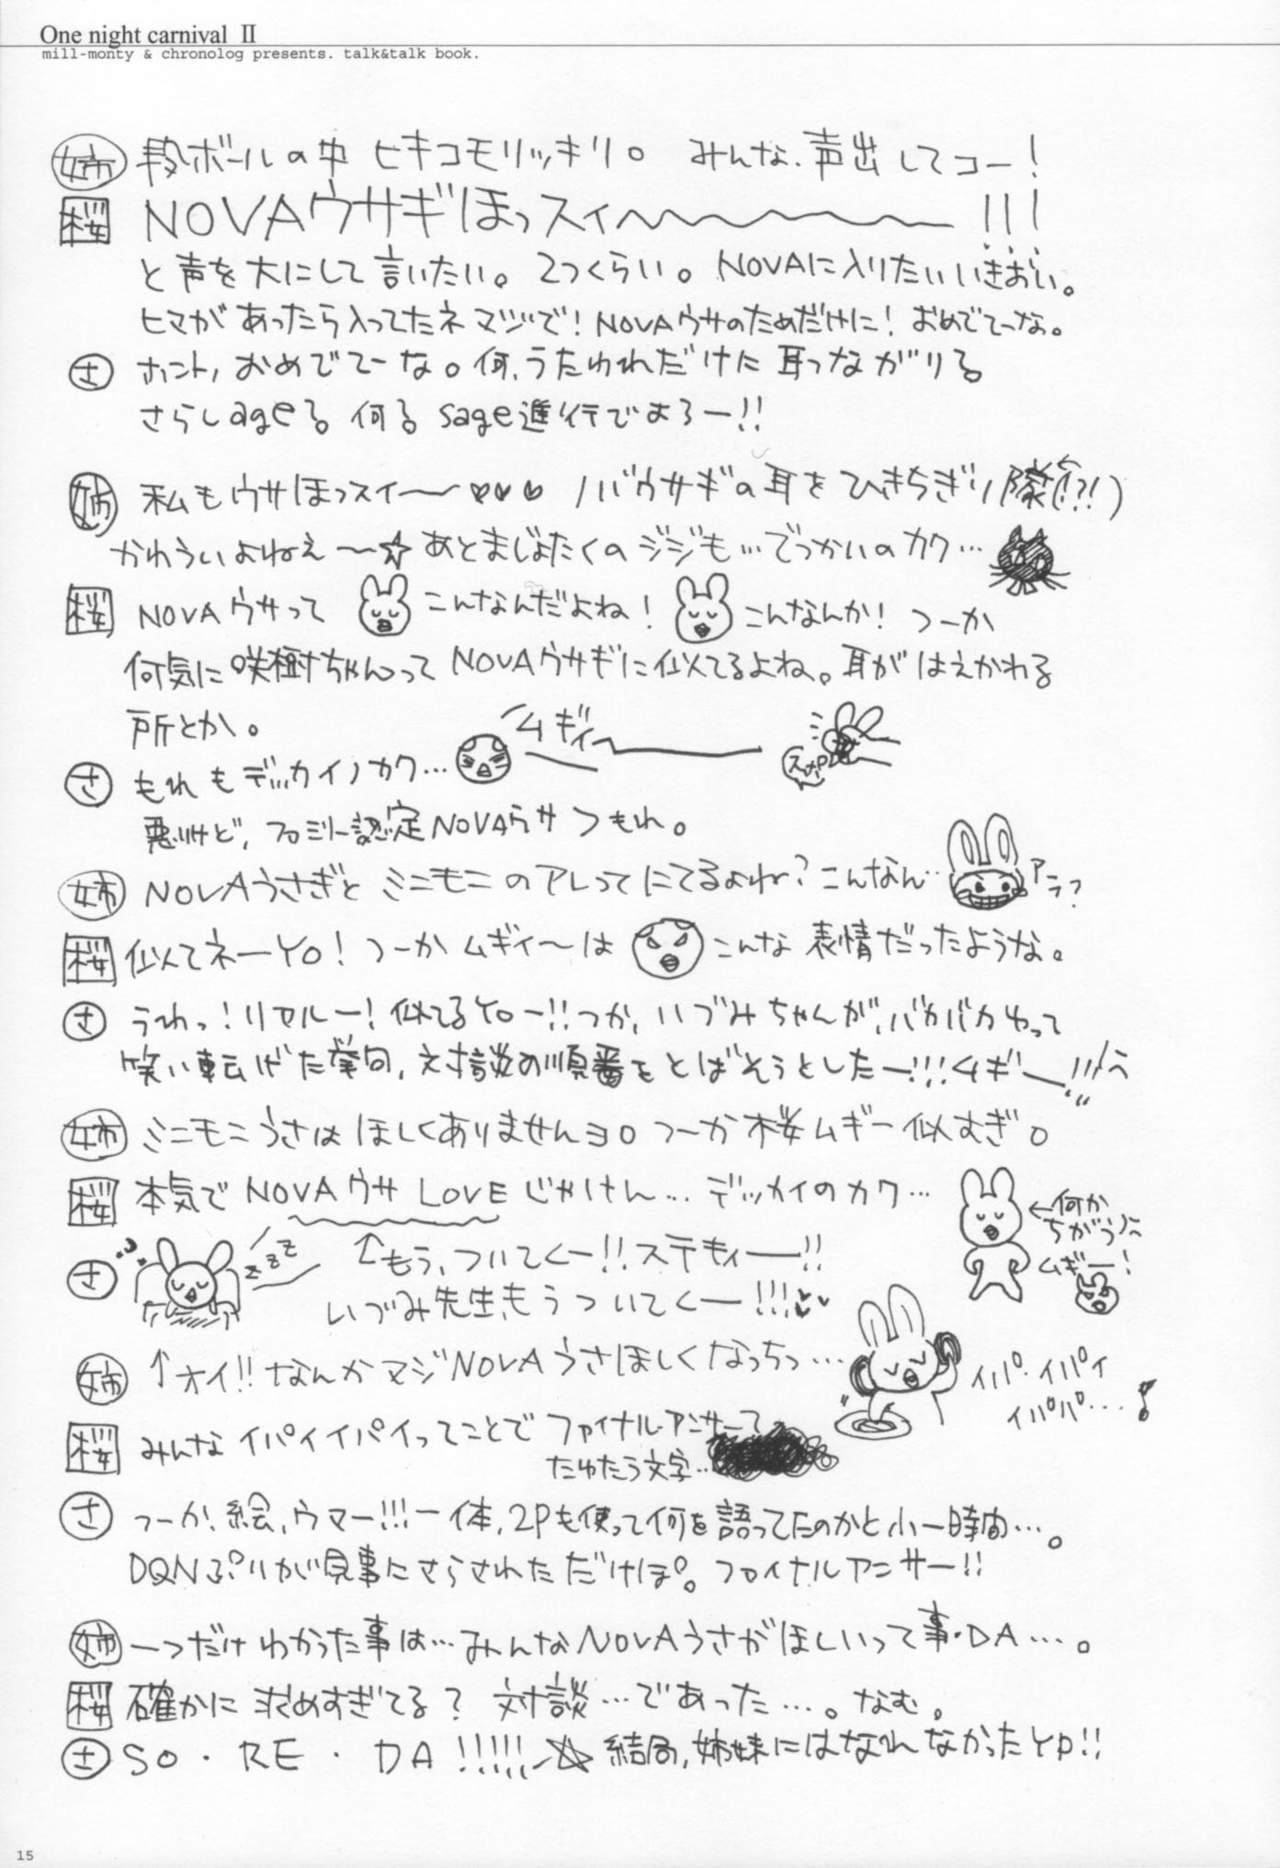 One night carnival Ⅱ
mill-monty & chronolog presents. talk&talk book.
姉 段ボールの中 ヒキコモリッキリ。 みんな、声出してコー!
桜 NOVAウサギほっスィ〜〜〜〜〜!!!
と声を大にして言いたい。2つくらい。NOVAに入りたいいきおい。
ヒマがあったら入ってたネマジで!NOVAウサのためだけに!おめでてーな。
さ ホント、おめでてーな。何、うたわれだけに耳つながりる
さらしageる。何る sage進行でよろー!!
姉 私もウサほっスィ〜〜♡♡♡ ノバウサギの耳をひきちぎり隊(!?!)
かわうぃよねぇ〜☆あとまじょたくのジジも…でっかいのカク…
桜 NOVAウサって こんなんだよね! こんなんか! つーか
何気に咲樹ちゃんってNOVAウサギに似てるよね。耳がはえかわる
所とか。
ムギィ〜
さ もれもデッカイノカク…
悪いけど、ファミリー認定NOVAウサつもれ。
姉 NOVAうさぎとミニモニのアレってにてるよね?こんなん…
アラ?
桜 似てネーYO! つーか ムギィ〜は こんな表情だったような。
さ うわっ!リアルー!似てるYoー!!つか、いづみちゃんが、バカバカやって
笑い転げた挙句、対談の順番をとばそうとしたー!!!ムギー!!!
姉 ミニモニうさはほしくありませんヨ。つーか桜ムギー似すぎ。
桜 本気でNOVAウサ LOVEじゃけん…デッカイのカク…
←何か
ちがう
ムギー!
zzz
さ ↑もう、ついてくー!!ステキィー!!
いづみ先生もうついてくー!!!
姉 ↑オイ!!なんかマジNOVAうさほしくなっちっ…
イパ・イパイ
イパパ…♪
桜 みんなイパイイパイってことでファイナルアンサーて
たゆたう文字…
さ つーか、絵、ウマー!!!一体、2Pも使って何を語ってたのかと小一時間…。
DQNぷりが見事にさらされただけぽ。ファイナルアンサー!!
姉 一つだけわかった事は…みんなNOVAうさがほしいって事・DA…。
桜 確かに求めすぎてる? 対談…であった…。なむ。
さ SO・RE・DA!!!!!☆ 結局、姉妹にはなれなかったYO!!
15